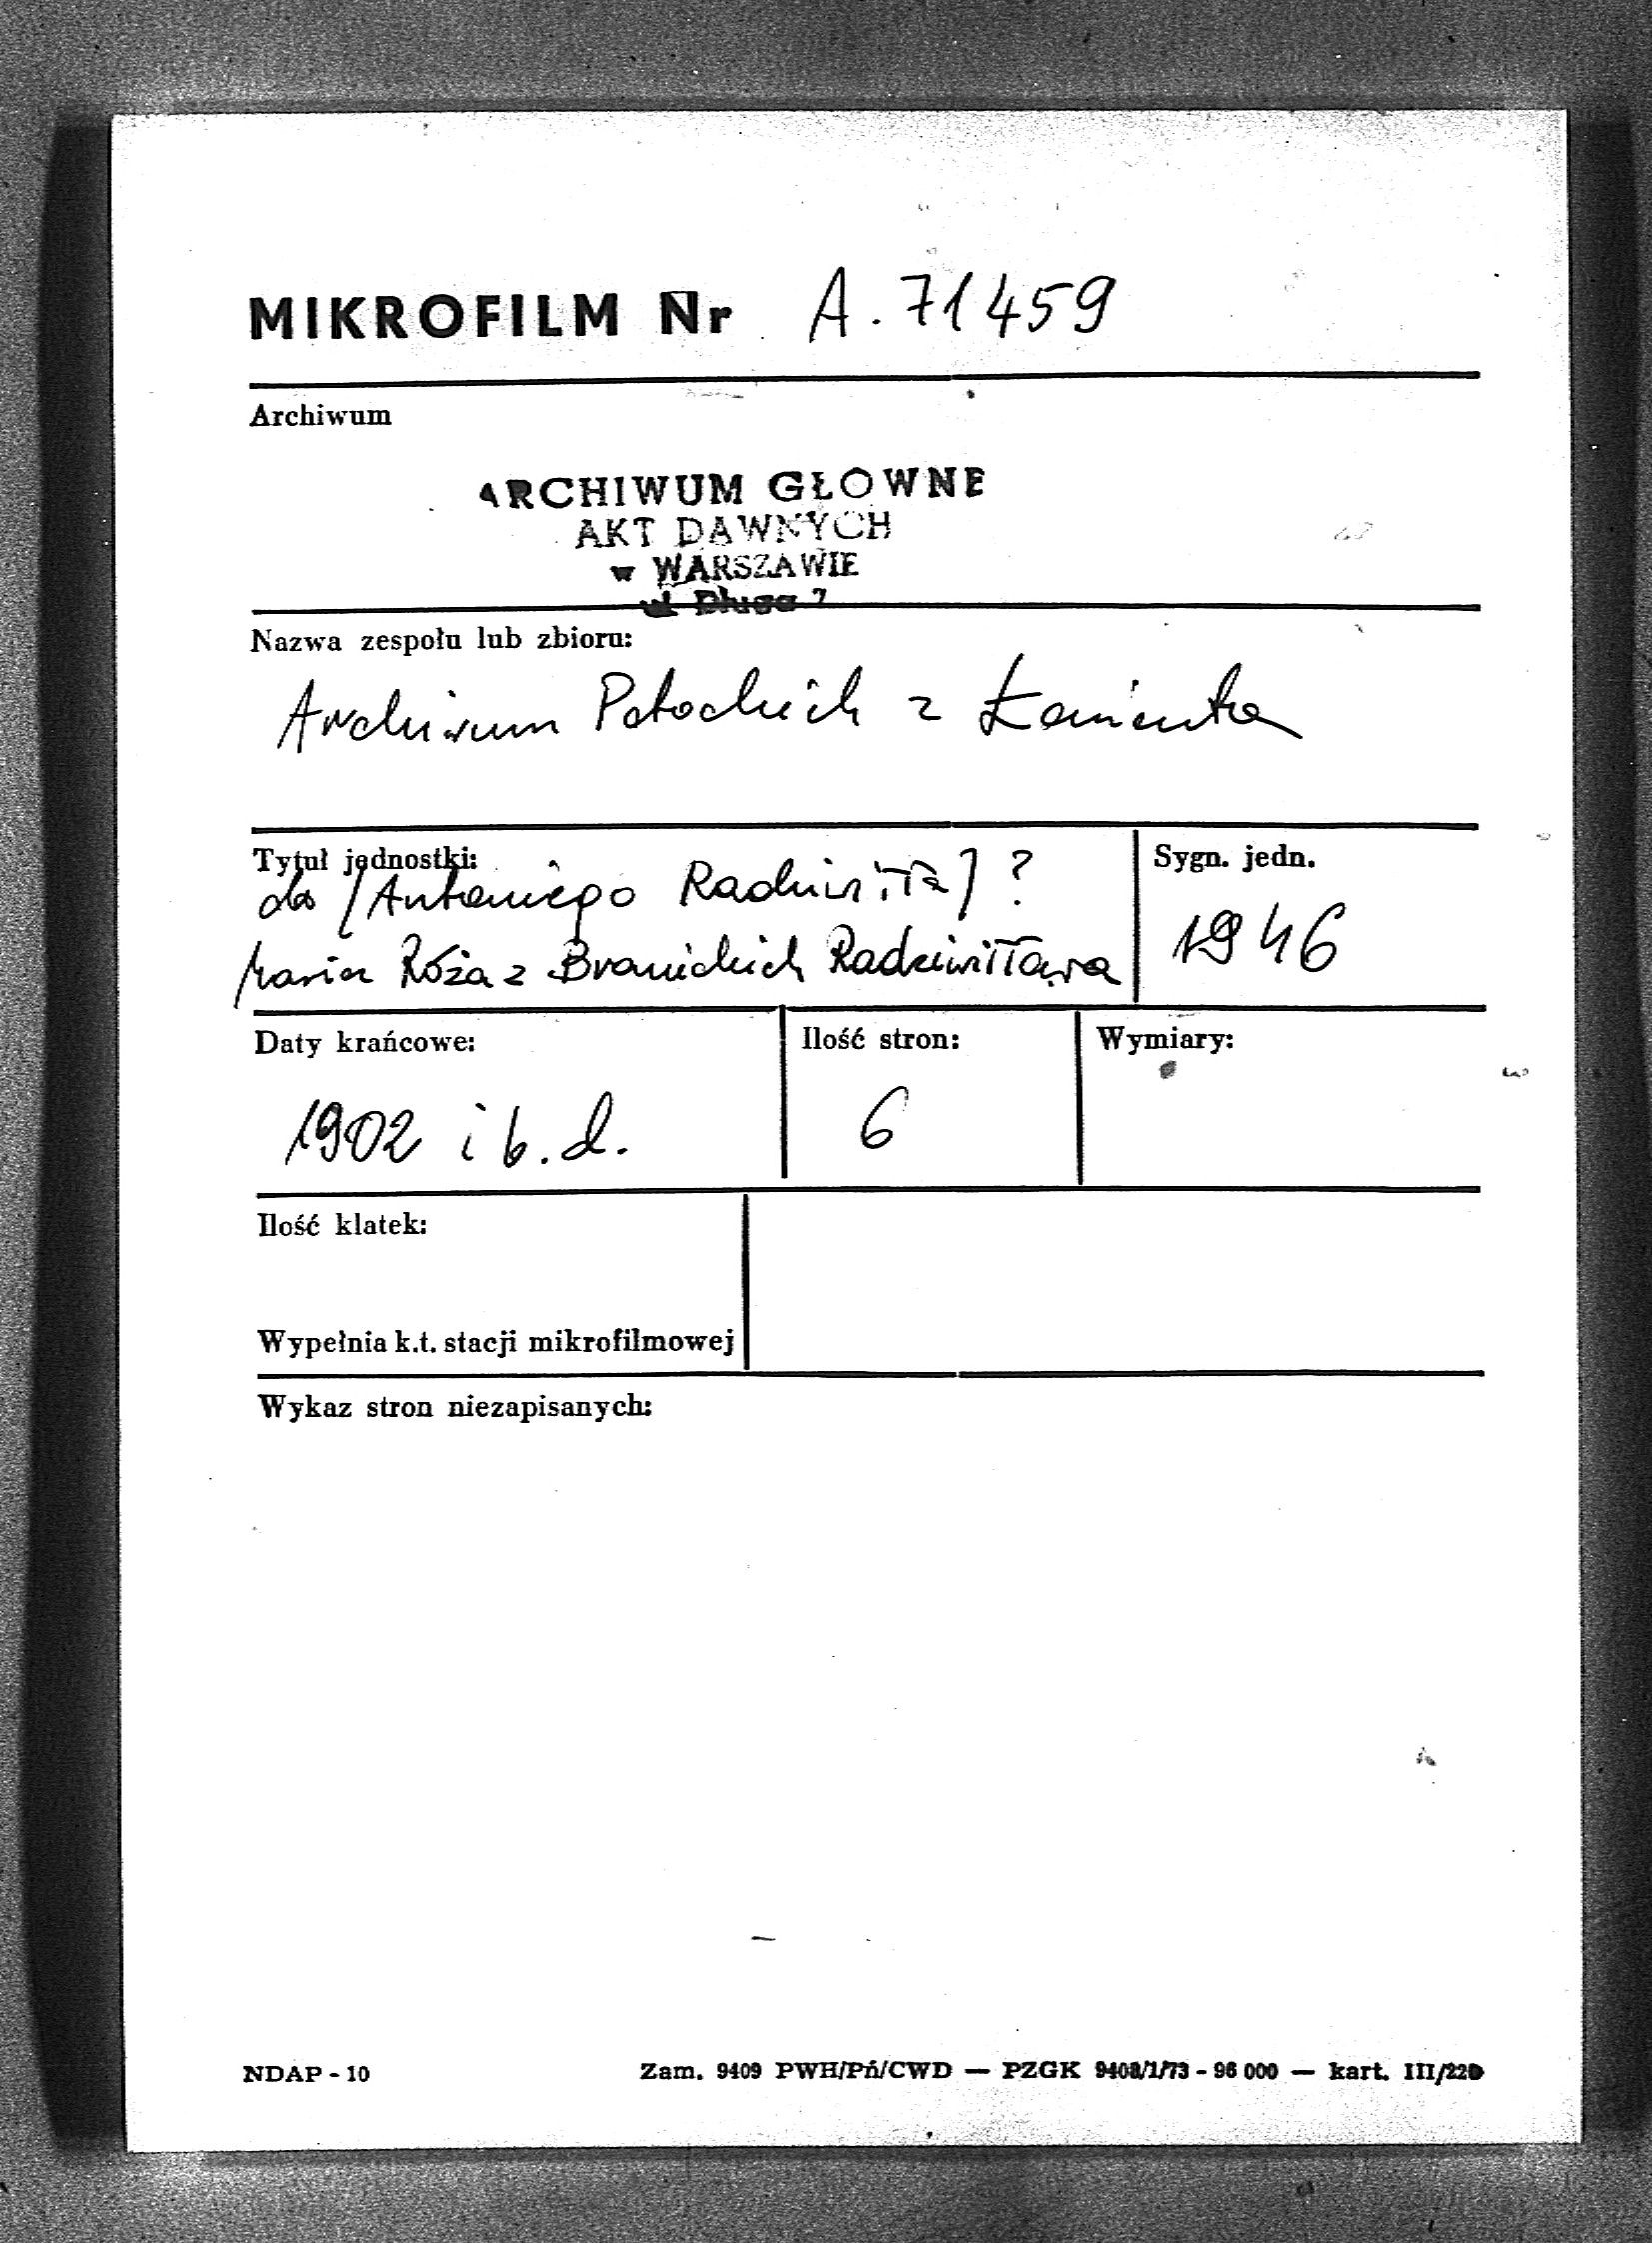 MIKROFILM Nr A. 71459
Archiwum
ARCHIWUM GŁOWNE
AKT DAWNYCH
w WARSZAWIE
ul. Długa 7
Nazwa zespołu lub zbioru:
Archiwum Potockich z Łańcuta
Tytuł jednostki:
do [Antoniego Radziwiłła] ?
Maria Róża z Branickich Radziwiłłowa
Sygn. jedn.
1946
Daty krańcowe:
1902 i b.d.
Ilość stron:
6
Wymiary:
Ilość klatek:
Wypełnia k.t. stacji mikrofilmowej
Wykaz stron niezapisanych:
NDAP - 10
Zam. 9409 PWH/Pń/CWD — PZGK 9408/1/73 - 96 000 — kart. III/220